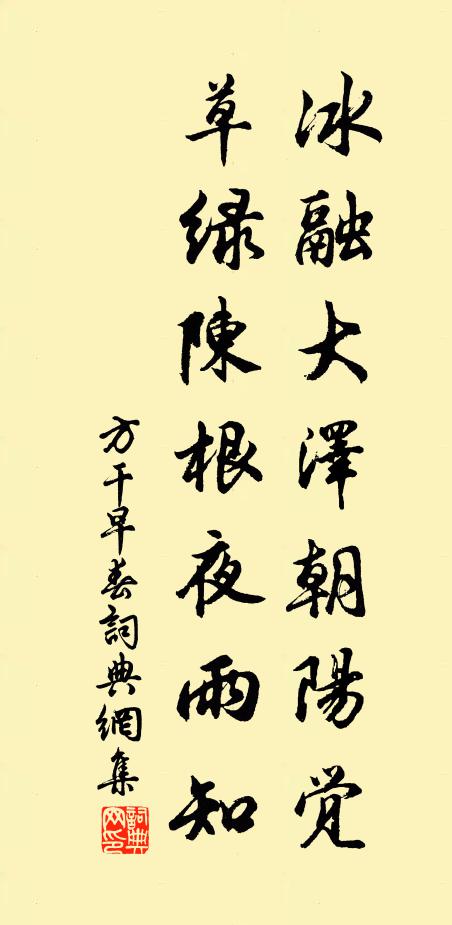 冰融大澤朝陽觉
草綠陳根夜雨知
方干早春詞典網集
詞典网印